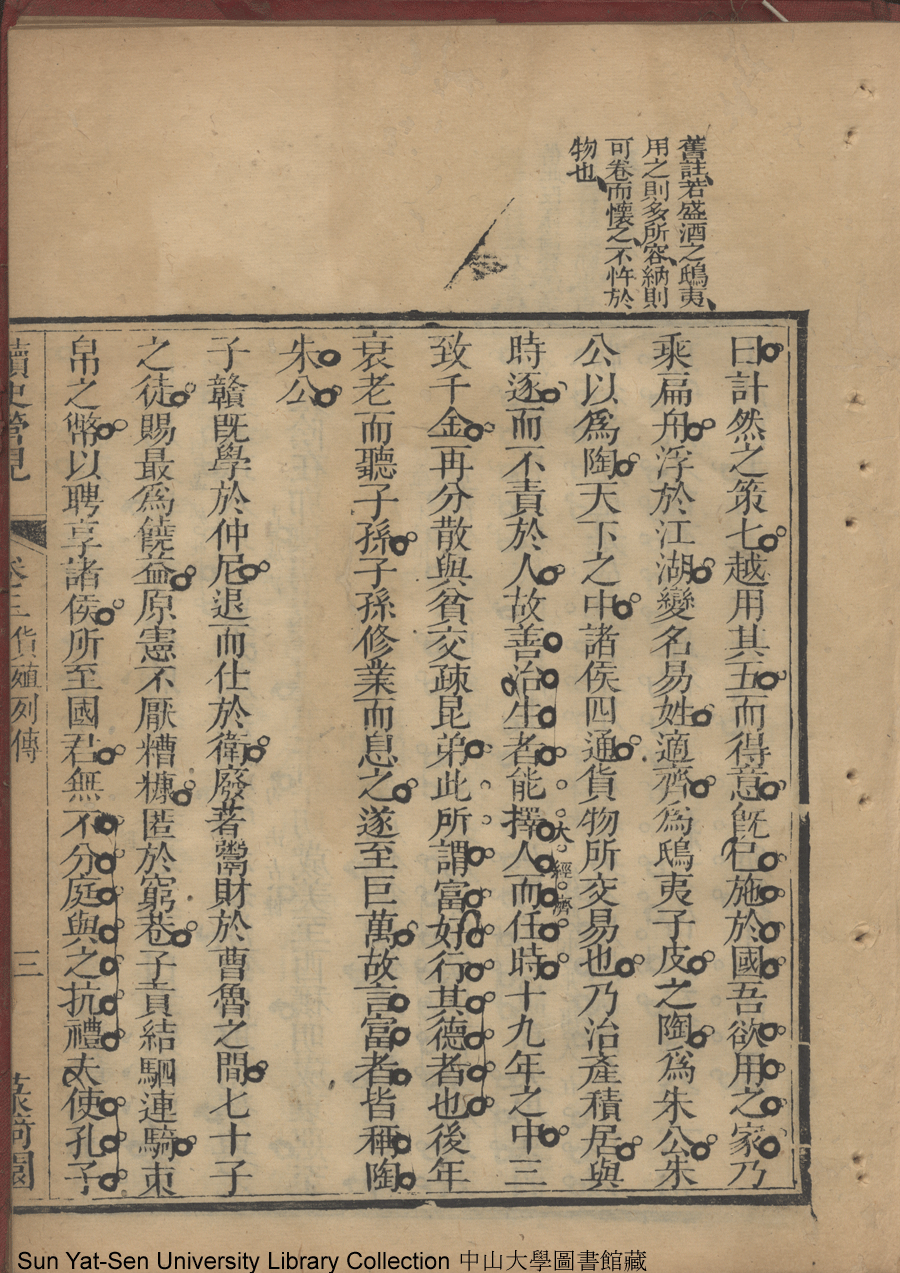 舊註若盛酒之鴟夷
用之則多所容納則
可卷而懷之不忤於
物也
曰計然之策七越用其五而得意旣已施於國吾欲用之家乃
乘扁舟浮於江湖變名易姓適齊爲鴟夷子皮之陶爲朱公朱
公以爲陶天下之中諸侯四通貨物所交易也乃治產積居與
時逐而不責於人故善治生者能擇人而任時十九年之中三
大經濟
致千金再分散與貧交疎昆弟此所謂富好行其德者也後年
衰老而聽子孫子孫修業而息之遂至巨萬故言富者皆稱陶
朱公
子贛旣學於仲尼退而仕於衛廢著鬻財於曹魯之間七十子
之徒賜最爲饒益原憲不厭糟糠匿於窮巷子貢結駟連騎束
帛之幣以聘享諸侯所至國君無不分庭與之抗禮夫使孔子
讀史管見 卷三貨殖列傳 三
Sun Yat-Sen University Library Collection 中山大學圖書館藏